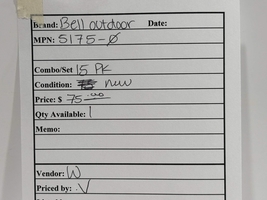 Brand: Bell outdoor Date:
MPN: 5175-Ø
Combo/Set 15 PK
Condition: new
Price: $ 75.00
Qty Available: 1
Memo:
Vendor: W
Priced by: V